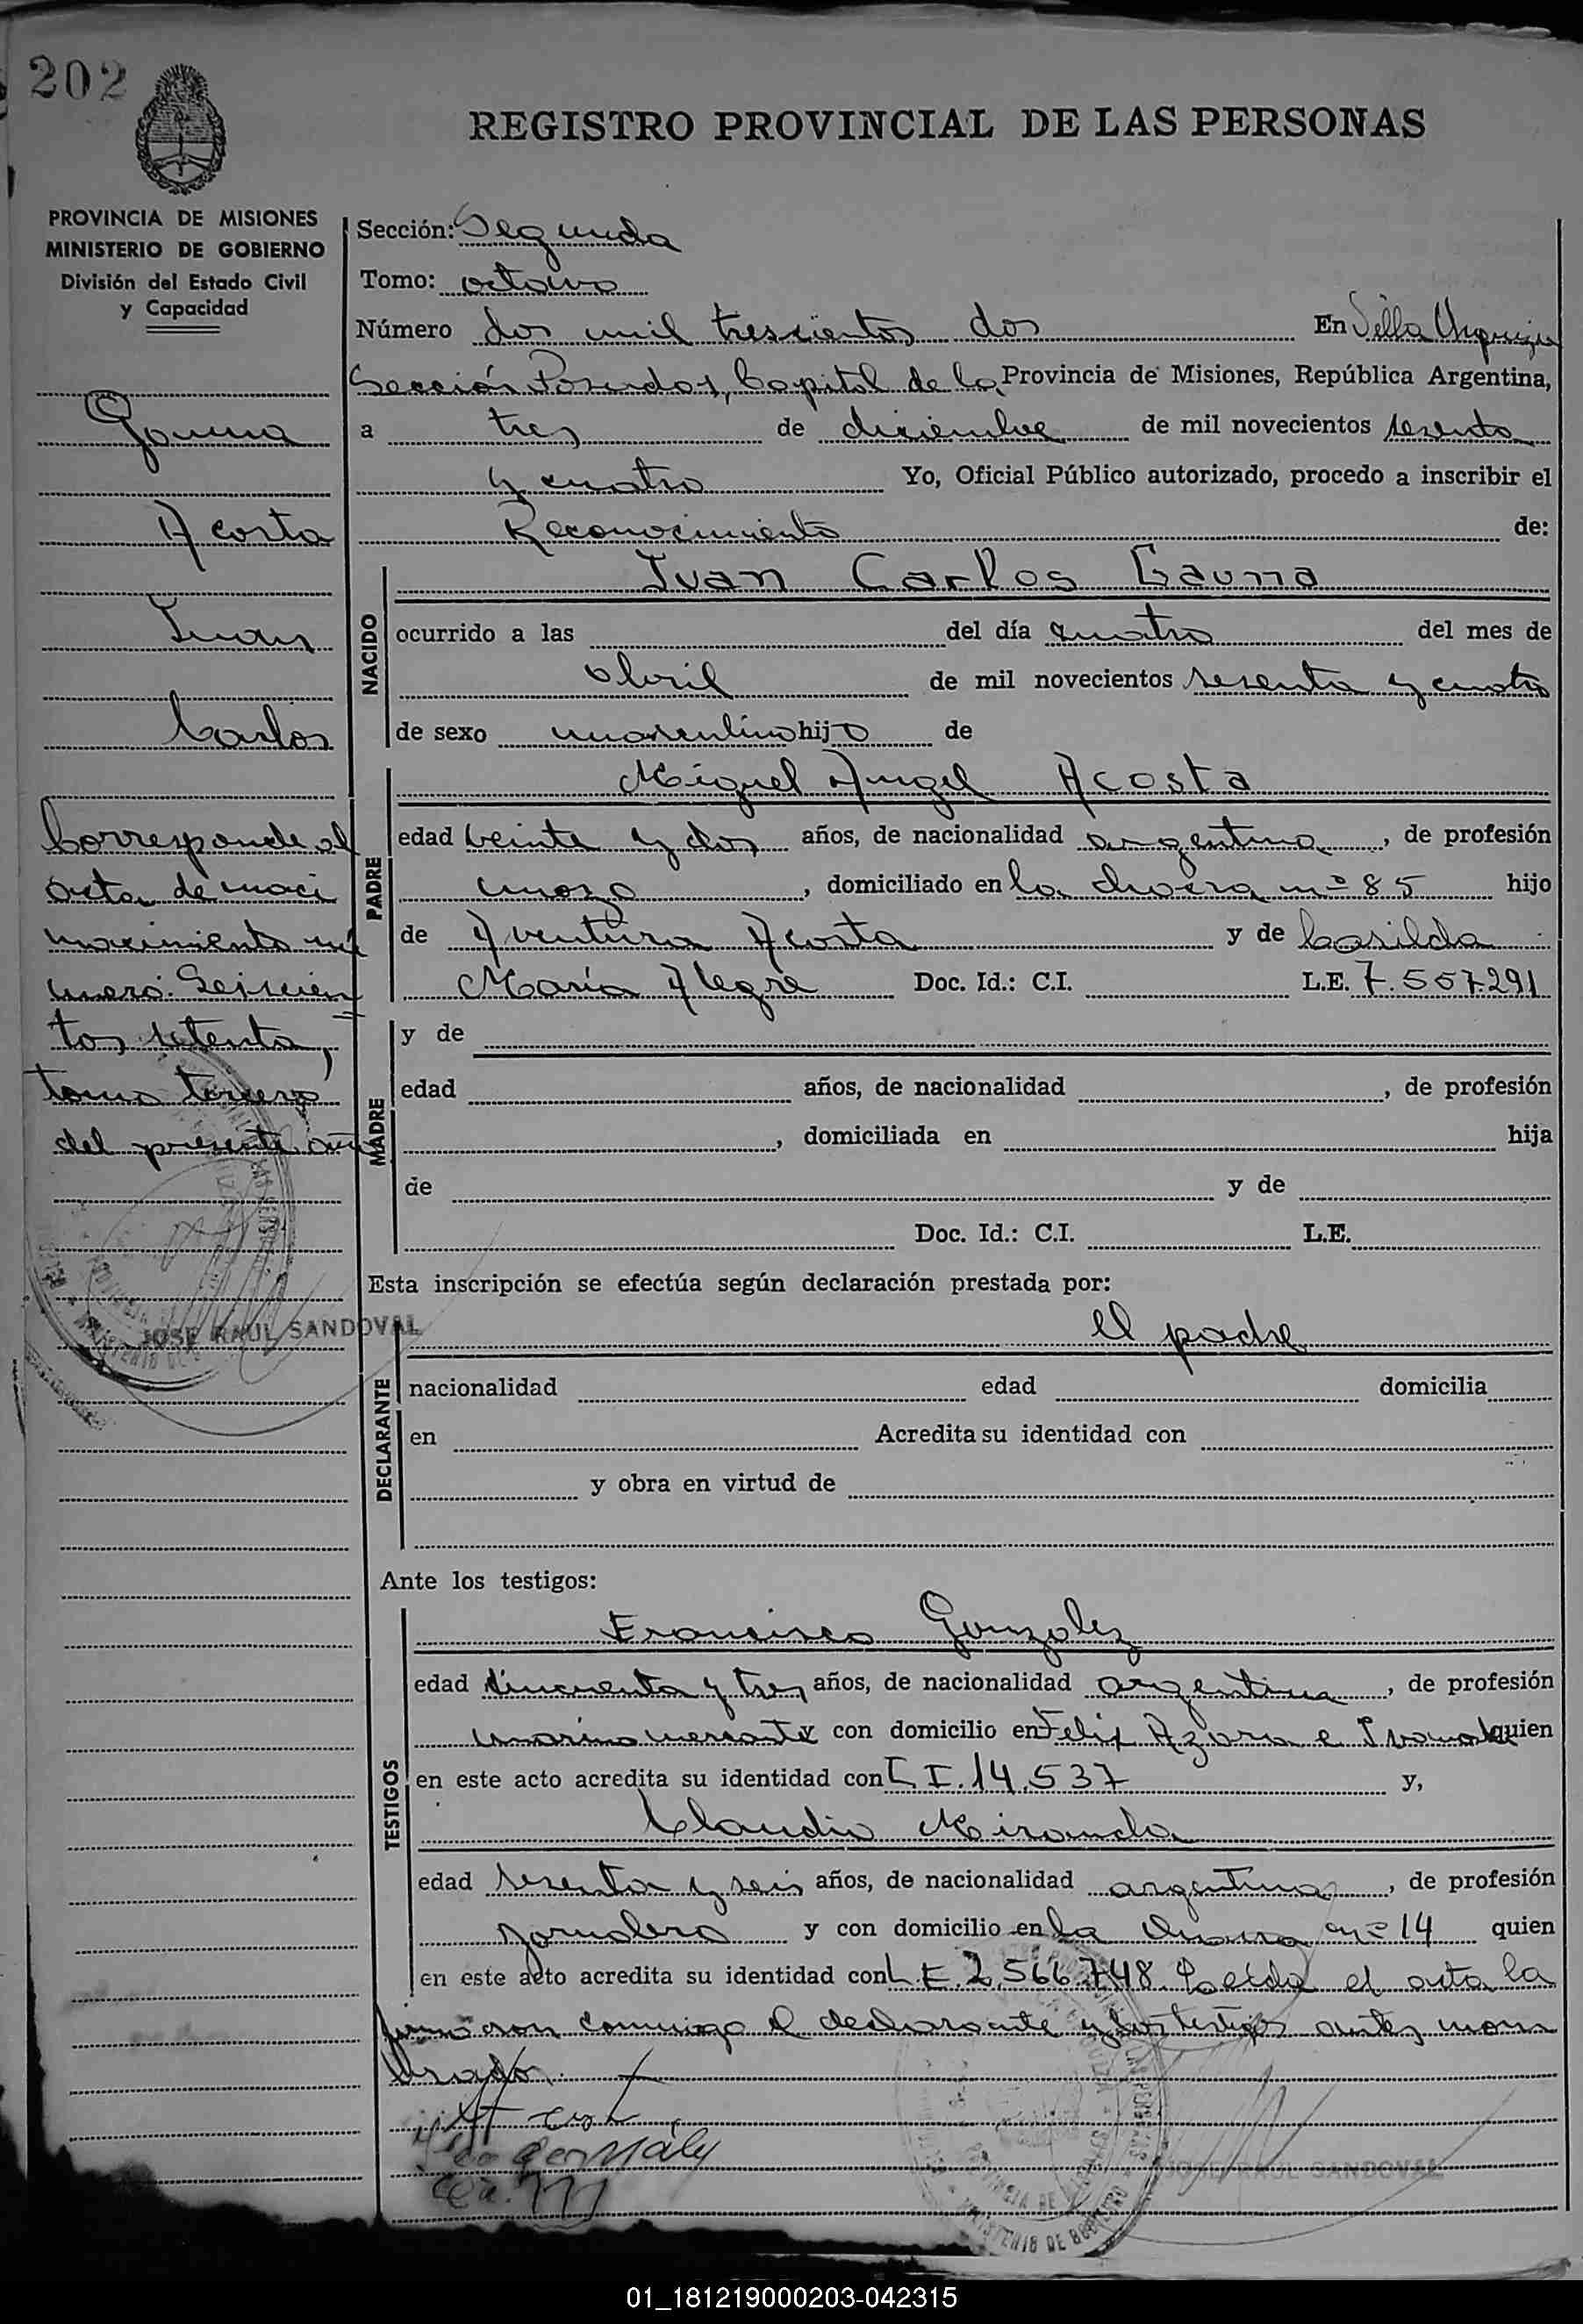 202
REGISTRO PROVINCIAL DE LAS PERSONAS
PROVINCIA DE MISIONES
MINISTERIO DE GOBIERNO
División del Estado Civil
y Capacidad
Gauna
Acosta
Juan
Carlos
Corresponde al
acta de naci
nacimiento nú
mero. Seiscien
tos setenta,
tomo tercero
del presente año
JOSE RAUL SANDOVAL
Sección: Segunda
Tomo: octavo
Número dos mil trescientos dos En Villa Urquiza
Sección Posadas, Capital de la Provincia de Misiones, República Argentina,
a tres de diciembre de mil novecientos sesenta
y cuatro Yo, Oficial Público autorizado, procedo a inscribir el
Reconocimiento de:
NACIDO
Juan Carlos Gauna
ocurrido a las del día cuatro del mes de
abril de mil novecientos sesenta y cuatro
de sexo masculino hijo de
PADRE
Miguel Angel Acosta
edad veinte y dos años, de nacionalidad argentina, de profesión
mozo, domiciliado en la chacra nº 85 hijo
de Aventura Acosta y de Casilda
María Alegre Doc. Id.: C.I. L.E. 7.557.291
MADRE
y de
edad años, de nacionalidad , de profesión
, domiciliada en hija
de y de
Doc. Id.: C.I. L.E.
Esta inscripción se efectúa según declaración prestada por:
DECLARANTE
el padre
nacionalidad edad domicilia
en Acredita su identidad con
y obra en virtud de
Ante los testigos:
TESTIGOS
Francisco Gonzalez
edad cincuenta y tres años, de nacionalidad argentina, de profesión
marino mercante con domicilio en Felix Azara e quien
en este acto acredita su identidad con C I. 14.537 y,
Claudio Miranda
edad sesenta y seis años, de nacionalidad argentina, de profesión
jornalero y con domicilio en la chacra nº 14 quien
en este acto acredita su identidad con L.E. 2.566.748 Leída el acta la
firmaron conmigo el declarante y los testigos antes nom
brados.
JOSE RAUL SANDOVAL
01_181219000203-042315